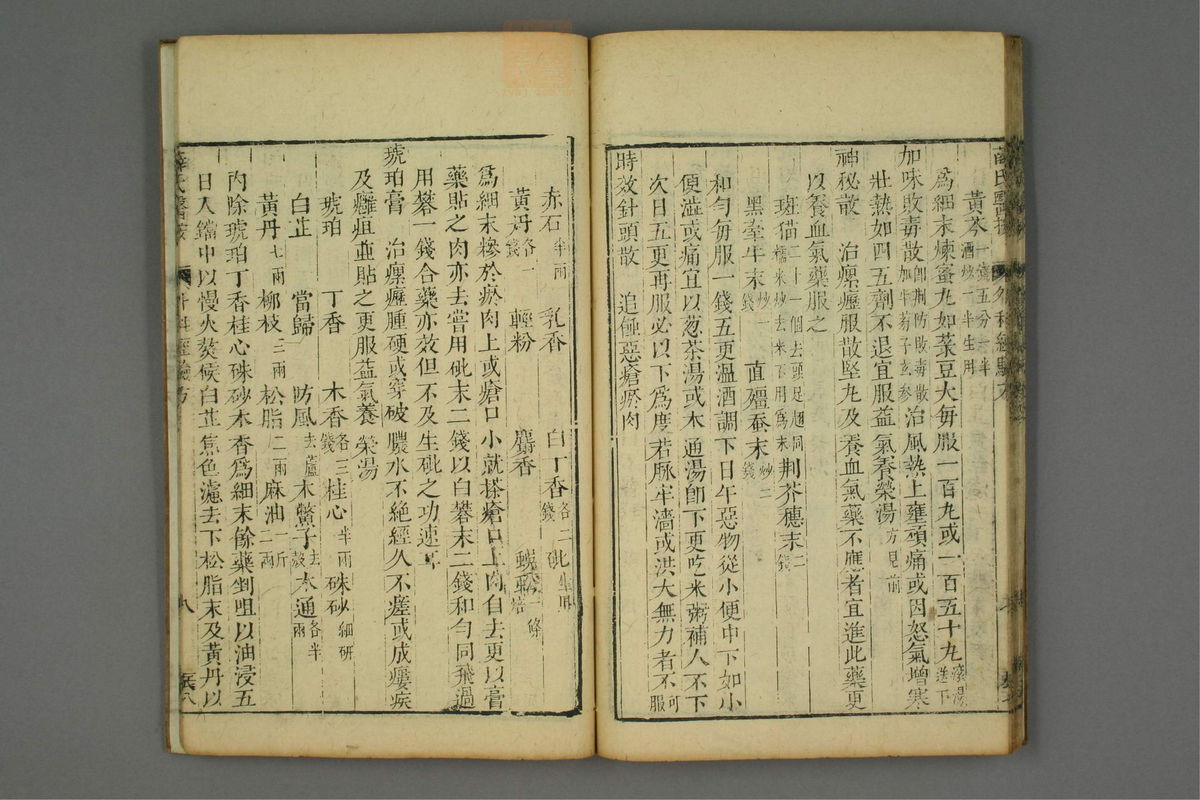 黃芩一錢五分一半酒炒一半生用
為細末煉蜜丸如菉豆大每服一百丸或一百五十丸滾湯送下
加味敗毒散即荊防敗毒散加牛蒡子玄參治風熱上壅頭痛或因怒氣增寒
壯熱如四五劑不退宜服益氣養榮湯方見前
神秘散 治瘰癧服散堅丸及養血氣藥不應者宜進此藥更
以養血氣藥服之
斑猫二十一個去頭足翅同糯米炒去米不用為末 荆芥穗末二錢
黑牽牛末炒一錢 直殭蚕末炒二錢
和勻每服一錢五更温酒調下日午惡物從小便中下如小
便澁或痛宜以葱茶湯或木通湯卽下更吃米粥補人不下
次日五更再服必以下為度若脉牢濇或洪大無力者不可服
時效針頭散 追𠊓惡瘡瘀肉
赤石半兩 乳香 白丁香各二錢 砒生用
黃丹各一錢 輕粉 麝香 蜈蚣一條
為細末糝於瘀肉上或瘡口小就搽瘡口上肉自去更以膏
藥貼之肉亦去嘗用砒末二錢以白礬末二錢和勻同飛過
用礬一錢合藥亦效但不及生砒之功速耳
琥珀膏 治瘰癧腫硬或穿破膿水不絕經久不瘥或成瘻疾
及癰疽並貼之更服益氣養榮湯
琥珀 丁香 木香各三錢 桂心半兩 硃砂細研
白芷 當歸 防風去蘆 木鱉子去殻 木通各半兩
黃丹七兩 柳枝三兩 松脂二兩 麻油一斤二兩
內除琥珀丁香桂心硃砂木香為細末餘藥剉咀以油浸五
日入鐺中以慢火熬候白芷焦色濾去下松脂末及黃丹以